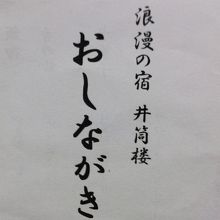 浪漫の宿 井筒楼
おしながき